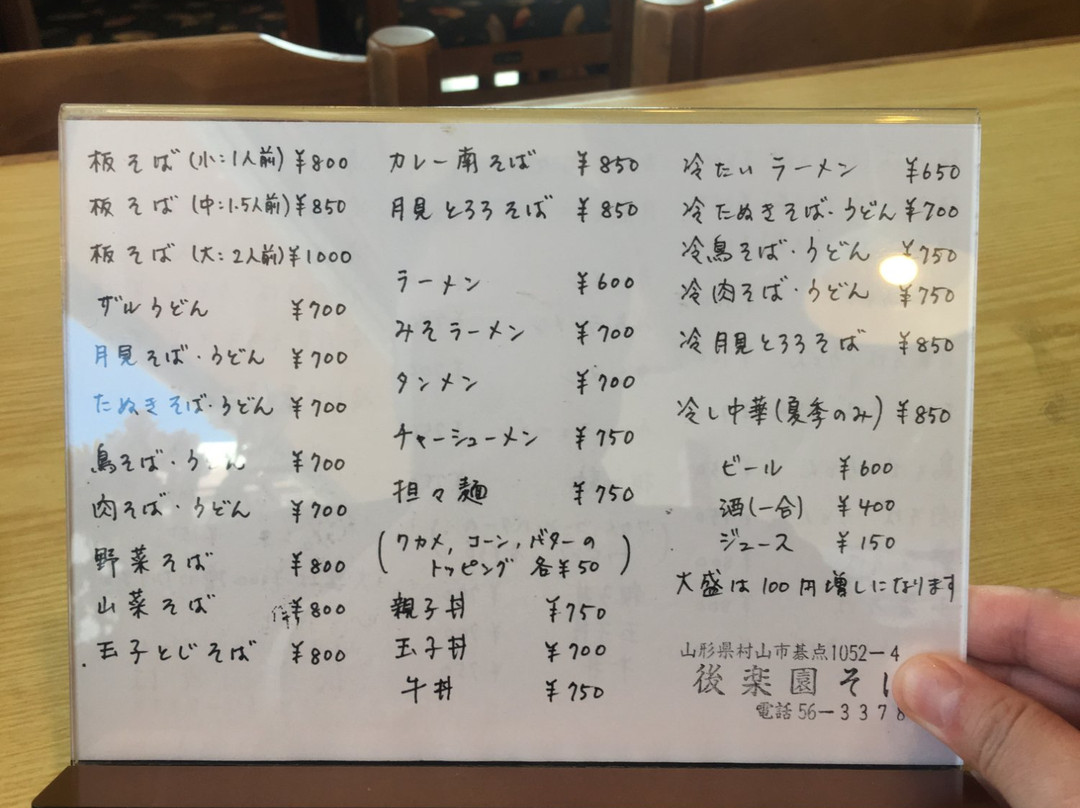 板そば(小:1人前)¥800
板そば(中:1.5人前)¥850
板そば(大:2人前)¥1000
ザルうどん ¥700
月見そば・うどん ¥700
たぬきそば・うどん ¥700
鳥そば・うどん ¥700
肉そば・うどん ¥700
野菜そば ¥800
山菜そば ¥800
玉子とじそば ¥800
カレー南そば ¥850
月見とろろそば ¥850
ラーメン ¥600
みそラーメン ¥700
タンメン ¥700
チャーシューメン ¥750
担々麺 ¥750
(ワカメ,コーン,バターの
トッピング 各¥50)
親子丼 ¥750
玉子丼 ¥700
牛丼 ¥750
冷たいラーメン ¥650
冷たぬきそば・うどん ¥700
冷鳥そば・うどん ¥750
冷肉そば・うどん ¥750
冷月見とろろそば ¥850
冷し中華(夏季のみ) ¥850
ビール ¥600
酒(一合) ¥400
ジュース ¥150
大盛は100円増しになります
山形県村山市碁点1052-4
後楽園そ
電話56-3378